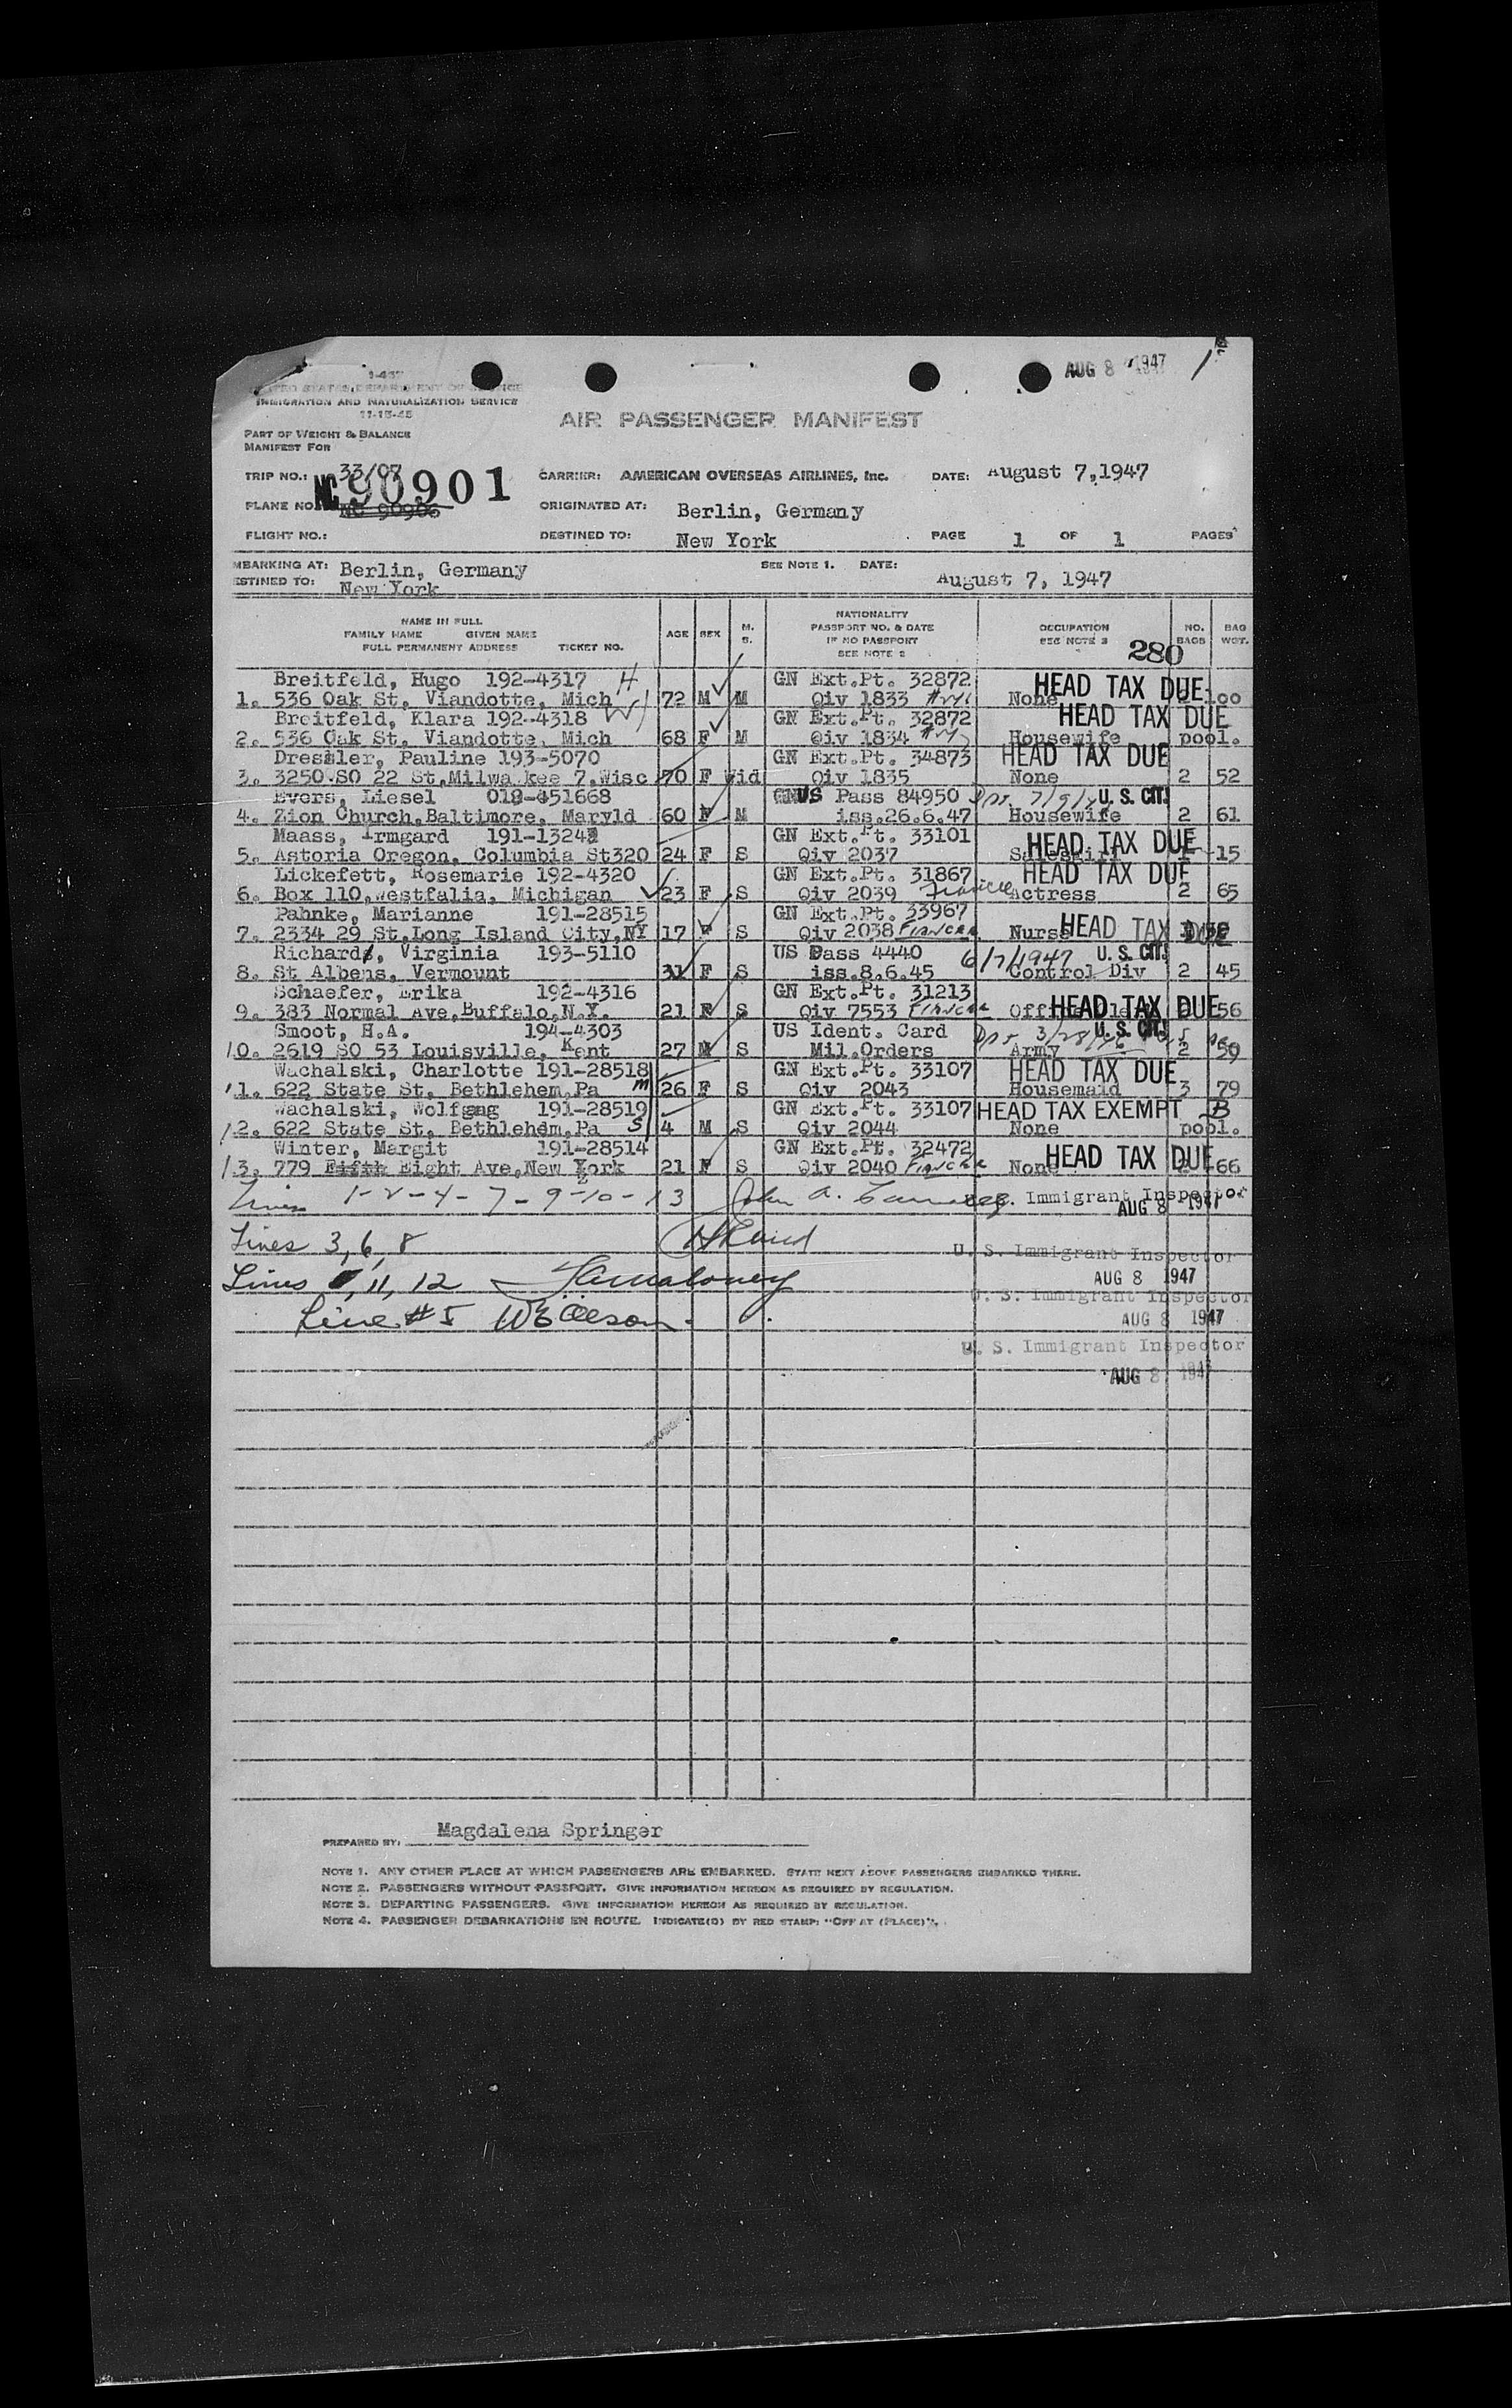 AUG 8 1947
UNITED STATES DEPARTMENT OF JUSTICE
IMMIGRATION AND NATURALIZATION SERVICE
11-15-45
AIR PASSENGER MANIFEST
PART OF WEIGHT & BALANCE
MANIFEST FOR
TRIP NO.: 33/07 CARRIER: AMERICAN OVERSEAS AIRLINES, Inc. DATE: August 7, 1947
NC 90901
PLANE NO. NC 90906 ORIGINATED AT: Berlin, Germany
FLIGHT NO.: DESTINED TO: New York PAGE 1 OF 1 PAGES
MBARKING AT: Berlin, Germany SEE NOTE 1. DATE: August 7, 1947
ESTINED TO: New York
NAME IN FULL
FAMILY NAME GIVEN NAME
FULL PERMANENT ADDRESS TICKET NO.
AGE SEX M. S.
NATIONALITY
PASSPORT NO. & DATE
IF NO PASSPORT
SEE NOTE 2
OCCUPATION
SEE NOTE 3
NO. BAGS
BAG WGT.
280
Breitfeld, Hugo 192-4317 H GN Ext.Pt. 32872 HEAD TAX DUE
1. 536 Oak St, Viandotte, Mich 72 M M Qiv 1833 None 100
Breitfeld, Klara 192-4318 W GN Ext.Pt. 32872 HEAD TAX DUE
2. 536 Oak St, Viandotte, Mich 68 F M Qiv 1834 Housewife pool.
Dressler, Pauline 193-5070 GN Ext.Pt. 34873 HEAD TAX DUE
3. 3250 SO 22 St,Milwa kee 7,Wisc 70 F Wid Qiv 1835 None 2 52
Evers, Liesel 019-451668 US Pass 84950 U. S. CIT.
4. Zion Church,Baltimore, Maryld 60 F M iss.26.6.47 Housewife 2 61
Maass, Irmgard 191-1324 GN Ext.Pt. 33101 HEAD TAX DUE
5. Astoria Oregon, Columbia St320 24 F S Qiv 2037 Salesgirl 15
Lickefett, Rosemarie 192-4320 GN Ext.Pt. 31867 HEAD TAX DUE
6. Box 110,Westfalia, Michigan 23 F S Qiv 2039 Actress 2 65
Pahnke, Marianne 191-28515 GN Ext.Pt. 33967
7. 2334 29 St,Long Island City,NY 17 F S Qiv 2038 FIANCEE Nurse HEAD TAX DUE
Richards, Virginia 193-5110 US Pass 4440 6/7/1947 U. S. CIT.
8. St Albens, Vermount 31 F S iss.8.6.45 Control Div 2 45
Schaefer, Erika 192-4316 GN Ext.Pt. 31213
9. 383 Normal Ave,Buffalo,N.Y. 21 F S Qiv 7553 FIANCEE HEAD TAX DUE 56
Smoot, H.A. 194-4303 US Ident. Card U. S. CIT.
10. 2619 SO 53 Louisville, Kent 27 M S Mil.Orders Army 2 59
Wachalski, Charlotte 191-28518 GN Ext.Pt. 33107 HEAD TAX DUE
11. 622 State St, Bethlehem,Pa m 26 F S Qiv 2043 Housemaid 3 79
Wachalski, Wolfgang 191-28519 GN Ext.Pt. 33107 HEAD TAX EXEMPT B
12. 622 State St, Bethlehem,Pa S 4 M S Qiv 2044 None pool.
Winter, Margit 191-28514 GN Ext.Pt. 32472
13. 779 Fifth Eight Ave,New York 21 F S Qiv 2040 FIANCEE None HEAD TAX DUE 66
Lines 1-2-4-7-9-10-13 John A. U. S. Immigrant Inspector
AUG 8 1947
Lines 3, 6, 8
U. S. Immigrant Inspector
Lines 11, 12 AUG 8 1947
U. S. Immigrant Inspector
Line #5 AUG 8 1947
U. S. Immigrant Inspector
AUG 8 1947
PREPARED BY: Magdalena Springer
NOTE 1. ANY OTHER PLACE AT WHICH PASSENGERS ARE EMBARKED. STATE NEXT ABOVE PASSENGERS EMBARKED THERE.
NOTE 2. PASSENGERS WITHOUT PASSPORT. GIVE INFORMATION HEREON AS REQUIRED BY REGULATION.
NOTE 3. DEPARTING PASSENGERS. GIVE INFORMATION HEREON AS REQUIRED BY REGULATION.
NOTE 4. PASSENGER DEBARKATIONS EN ROUTE. INDICATE(D) BY RED STAMP: "OFF AT (PLACE)".